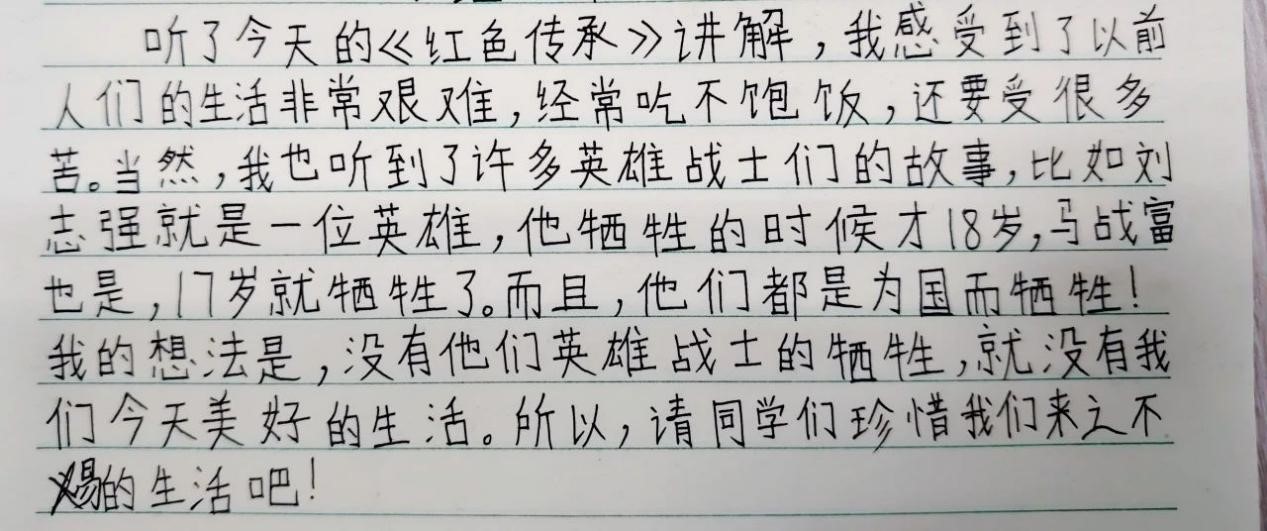 听了今天的《红色传承》讲解，我感受到了以前
人们的生活非常艰难，经常吃不饱饭，还要受很多
苦。当然，我也听到了许多英雄战士们的故事，比如刘
志强就是一位英雄，他牺牲的时候才18岁，马战富
也是，17岁就牺牲了。而且，他们都是为国而牺牲！
我的想法是，没有他们英雄战士的牺牲，就没有我
们今天美好的生活。所以，请同学们珍惜我们来之不
易的生活吧！